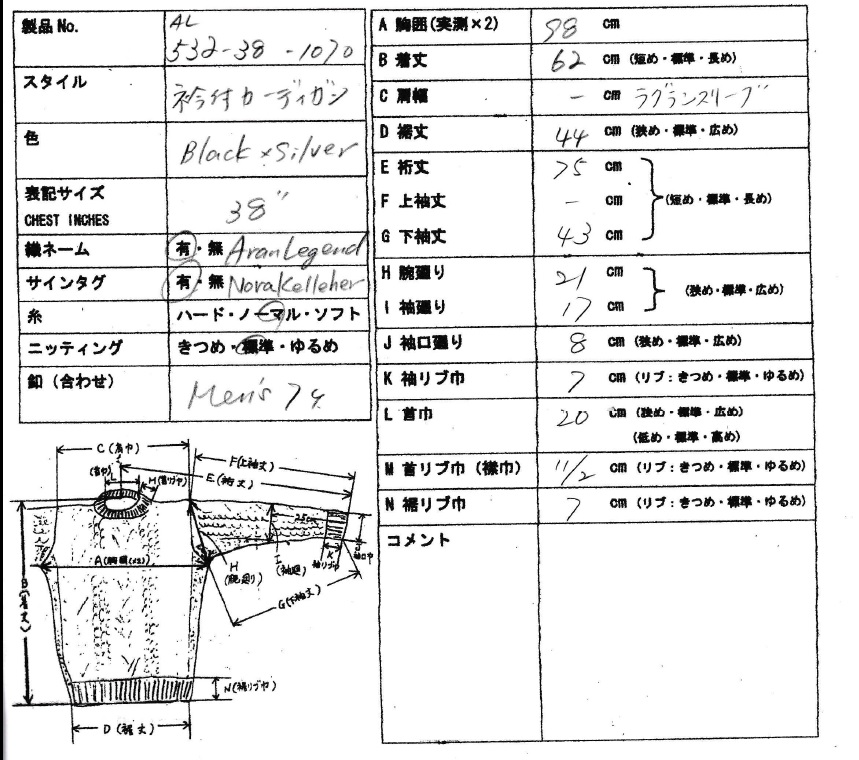 製品 No.
AL
532-38 -1070
スタイル
衿付カーディガン
色
Black×Silver
表記サイズ
CHEST INCHES
38"
織ネーム
有・無 AranLegend
サインタグ
有・無 NoraKelleher
糸
ハード・ノーマル・ソフト
ニッティング
きつめ・標準・ゆるめ
釦（合わせ）
Men's 7ケ
A 胸囲(実測×2) 98 cm
B 着丈 62 cm (短め・標準・長め)
C 肩幅 - cm ラグランスリーブ
D 裾丈 44 cm (狭め・標準・広め)
E 裄丈 75 cm
F 上袖丈 - cm (短め・標準・長め)
G 下袖丈 43 cm
H 腕廻り 21 cm
(狭め・標準・広め)
I 袖廻り 17 cm
J 袖口廻り 8 cm (狭め・標準・広め)
K 袖リブ巾 7 cm (リブ：きつめ・標準・ゆるめ)
L 首巾 20 cm (狭め・標準・広め)
(低め・標準・高め)
M 首リブ巾（襟巾） 11/2 cm (リブ：きつめ・標準・ゆるめ)
N 裾リブ巾 7 cm (リブ：きつめ・標準・ゆるめ)
コメント
C(肩巾)
F(上袖丈)
E(裄丈)
L
(首巾)
M(首リブ巾)
A(胸囲(×2))
B(着丈)
H
(腕廻り)
I
(袖廻)
K
袖リブ巾
袖口巾
G(下袖丈)
N(裾リブ巾)
D(裾丈)